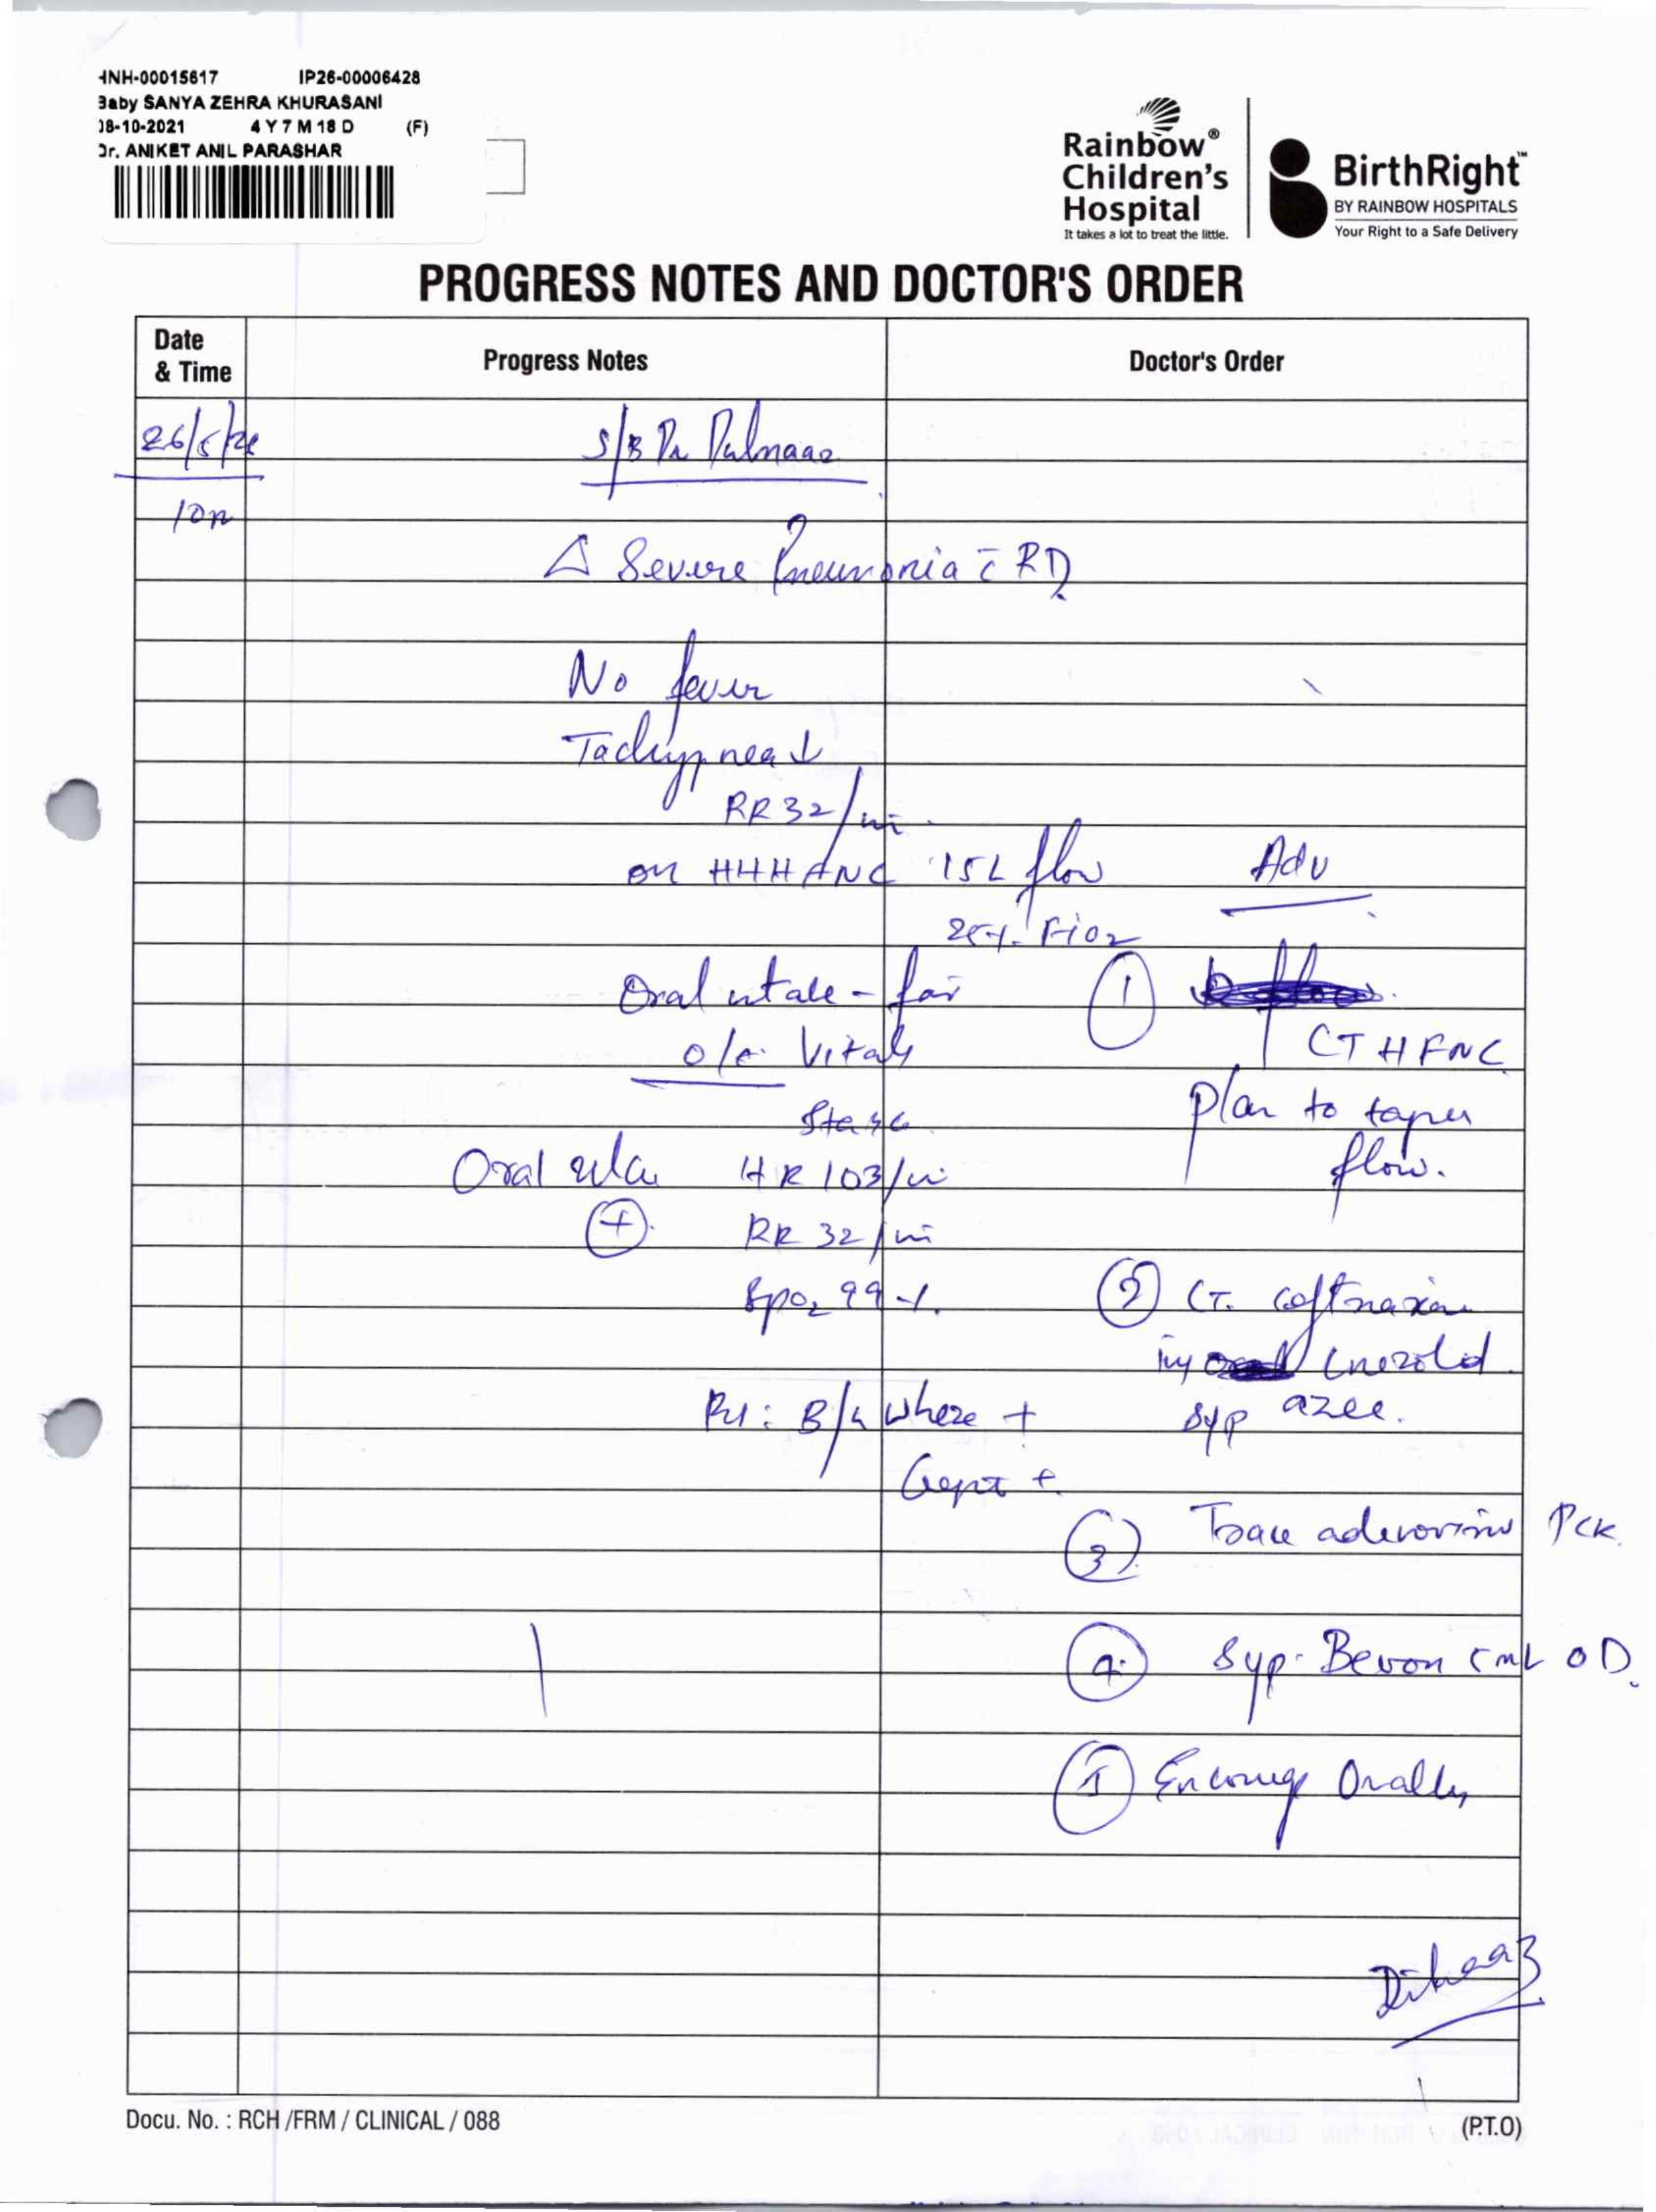 HNH-00015617 IP26-00006428
Baby SANYA ZEHRA KHURASANI
08-10-2021 4 Y 7 M 18 D (F)
Dr. ANIKET ANIL PARASHAR
Rainbow®
Children's
Hospital
It takes a lot to treat the little.
BirthRight™
BY RAINBOW HOSPITALS
Your Right to a Safe Delivery
PROGRESS NOTES AND DOCTOR'S ORDER
Date
& Time
Progress Notes
Doctor's Order
26/5/26
S/B Dr
Δ Severe Pneumonia c̄ RD
No fever
Tachypnea ↓
RR 32/mi
on HHHFNC 15L flow
FiO2
Adv
Oral intake - fair
①
o/e Vitals
CT HFNC
Plan to taper
flow.
Oral ulcer
HR 103/mi
+
RR 32/mi
SpO2 99%
② CT. ceftriaxone
inj linezolid
syp azee.
B/L wheeze +
Crepts +
③ Trace adenovirus PCR
④ Syp. Bevon 5ml OD.
⑤ Encourage Orally
Docu. No. : RCH /FRM / CLINICAL / 088
(P.T.O)